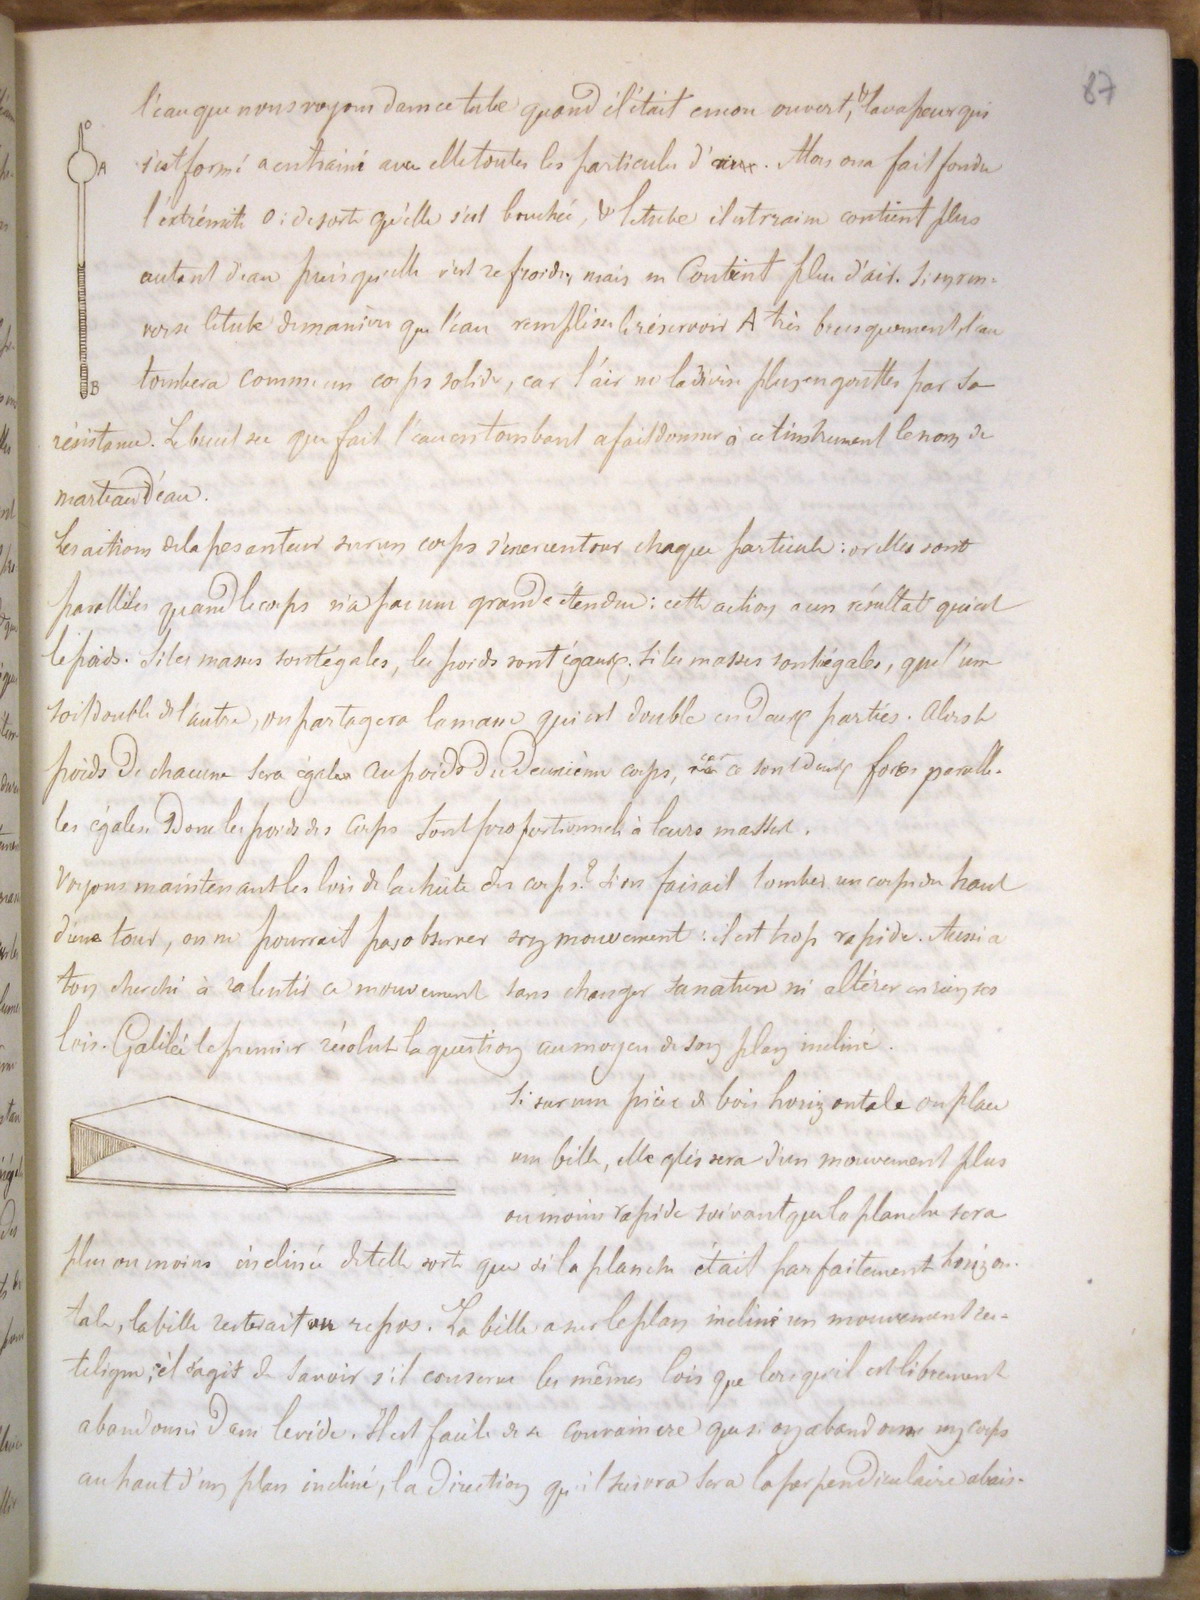 87
l'eau que nous voyons dans ce tube quand il était encore ouvert, & la vapeur qui
s'est formé a entrainé avec elle toutes les particules d'air. Alors on a fait fondre
O
A
l'éxtrémité O : de sorte qu'elle s'est bouchée, & le tube il est vrai ne contient plus
autant d'eau puisqu'elle s'est refroidie, mais ne contient plus d'air. Si on ren-
verse le tube de manière que l'eau remplisse le réservoir A très brusquement, l'eau
tombera comme un corps solide, car l'air ne la divise plus en gouttes par sa
B
résistance. Le bruit sec que fait l'eau en tombant a fait donner à cet instrument le nom de
marteau d'eau.
Les actions de la pesanteur sur un corps s'exercent sur chaque particule : or elles sont
parallèles quand le corps n'a pas une grande étendue : cette action a un résultat qui est
le poids. Si les masses sont égales, les poids sont égaux. Si les masses sont inégales, que l'une
soit double de l'autre, on partagera la masse qui est double en deux parties. Alors le
poids de chacune sera égale au poids du deuxième corps, car ce sont deux forces parallè-
les égales. Donc les poids des corps sont proportionnels à leurs masses.
Voyons maintenant les lois de la chûte des corps ? Si on faisait tomber un corps du haut
d'une tour, on ne pourrait pas observer son mouvement : il est trop rapide. Aussi a
t'on cherché à ralentir ce mouvement sans changer sa nature ni altérer en rien ses
lois. Galilée le premier résolut la question au moyen de son plan incliné.
Si sur une pièce de bois horizontale on place
une bille, elle glissera d'un mouvement plus
ou moins rapide suivant que la planche sera
plus ou moins inclinée de telle sorte que si la planche était parfaitement horizon-
tale, la bille resterait en repos. La bille a sur le plan incliné un mouvement rec-
tiligne ; il s'agit de savoir s'il conserve les mêmes lois que lorsqu'il est librement
abandonné dans le vide. Il est facile de se convaincre que si on abandonne un corps
au haut d'un plan incliné, la direction qu'il suivra sera la perpendiculaire abais-